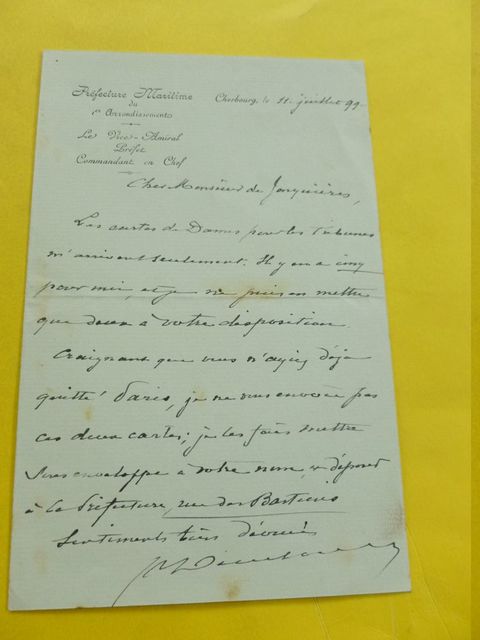 Préfecture Maritime
du
1er Arrondissement
Le Vice-Amiral
Préfet
Commandant en Chef
Cherbourg, le 11 juillet 99
Cher Monsieur de
Les cartes de Dames pour les tribunes
m'arrivent seulement. Il y en a cinq
pour moi, et je ne puis en mettre
que deux à votre disposition
Craignant que vous n'ayez déjà
quitté Paris, je ne vous envoie pas
ces deux cartes; je les fais mettre
sous enveloppe à votre nom, & déposer
à la Préfecture, rue des Bastions
Sentiments très dévoués